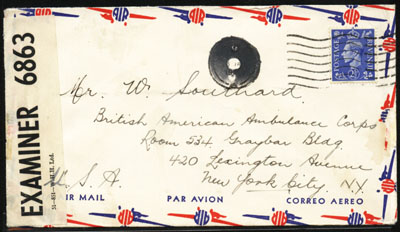 EXAMINER 6863
51-4511-W. H. H. Ltd.
POSTAGE REVENUE
Mr. W. Southard.
British American Ambulance Corps
Room 534 Graybar Bldg.
420 Lexington Avenue
New York City. N.Y.
U. S. A.
IR MAIL PAR AVION CORREO AEREO